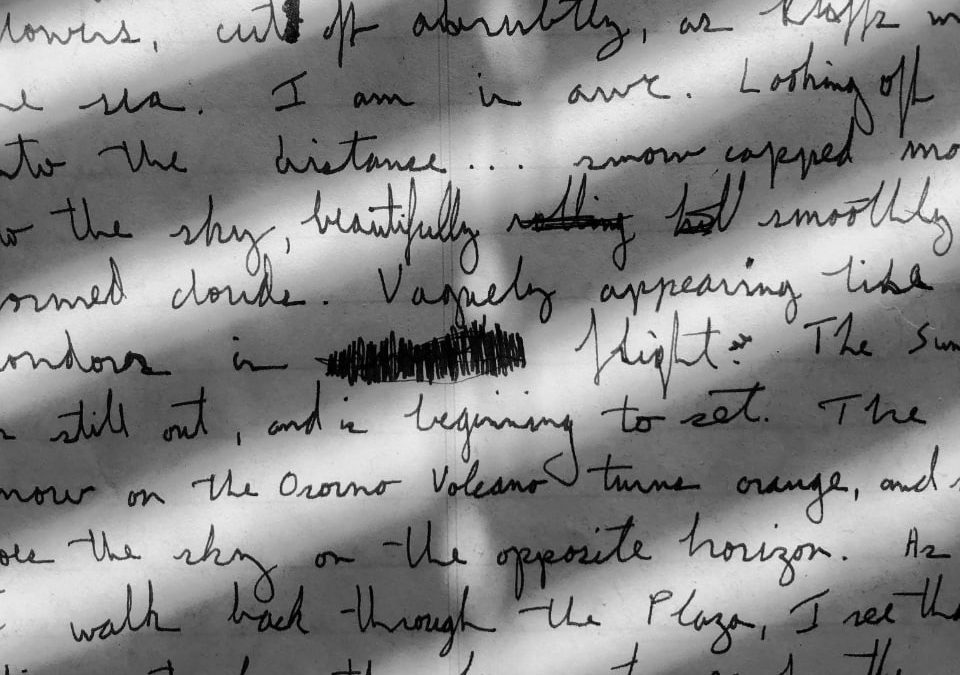 lowers, cut off abruptly, as
he sea. I am in awe. Looking off
nto the distance... snow capped mo
o the sky, beautifully rolling but smoothly
ormed clouds. Vaguely appearing like
ondors in flight. The Sun
s still out, and is beginning to set. The
now on the Osorno Volcano turns orange, and s
oes the sky on the opposite horizon. As
I walk back through the Plaza, I see tha